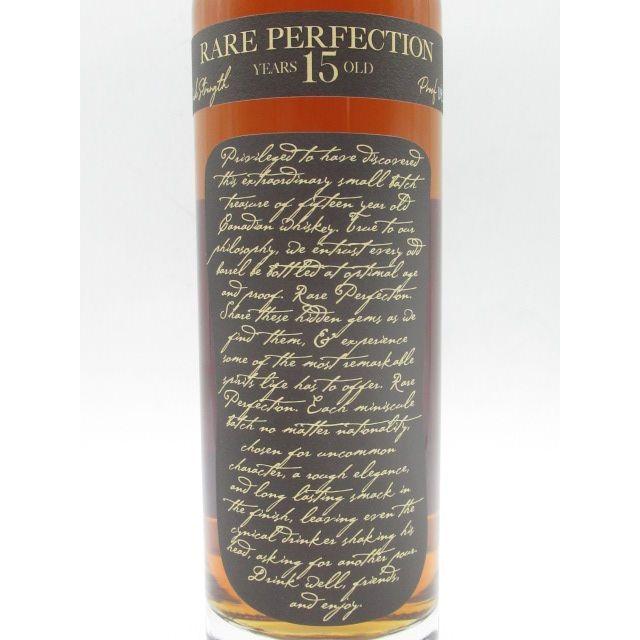 RARE PERFECTION
YEARS 15 OLD
Strength
Proof
Privileged to have discovered
this extraordinary small batch
treasure of fifteen year old
Canadian whiskey. True to our
philosophy, we entrust every odd
barrel be bottled at optimal age
and proof. Rare Perfection.
Share these hidden gems as we
find them, & experience
some of the most remarkable
spirits life has to offer. Rare
Perfection. Each miniscule
batch no matter nationality,
chosen for uncommon
character, a rough elegance,
and long lasting smack in
the finish, leaving even the
cynical drinker shaking his
head, asking for another pour.
Drink well, friends,
and enjoy.